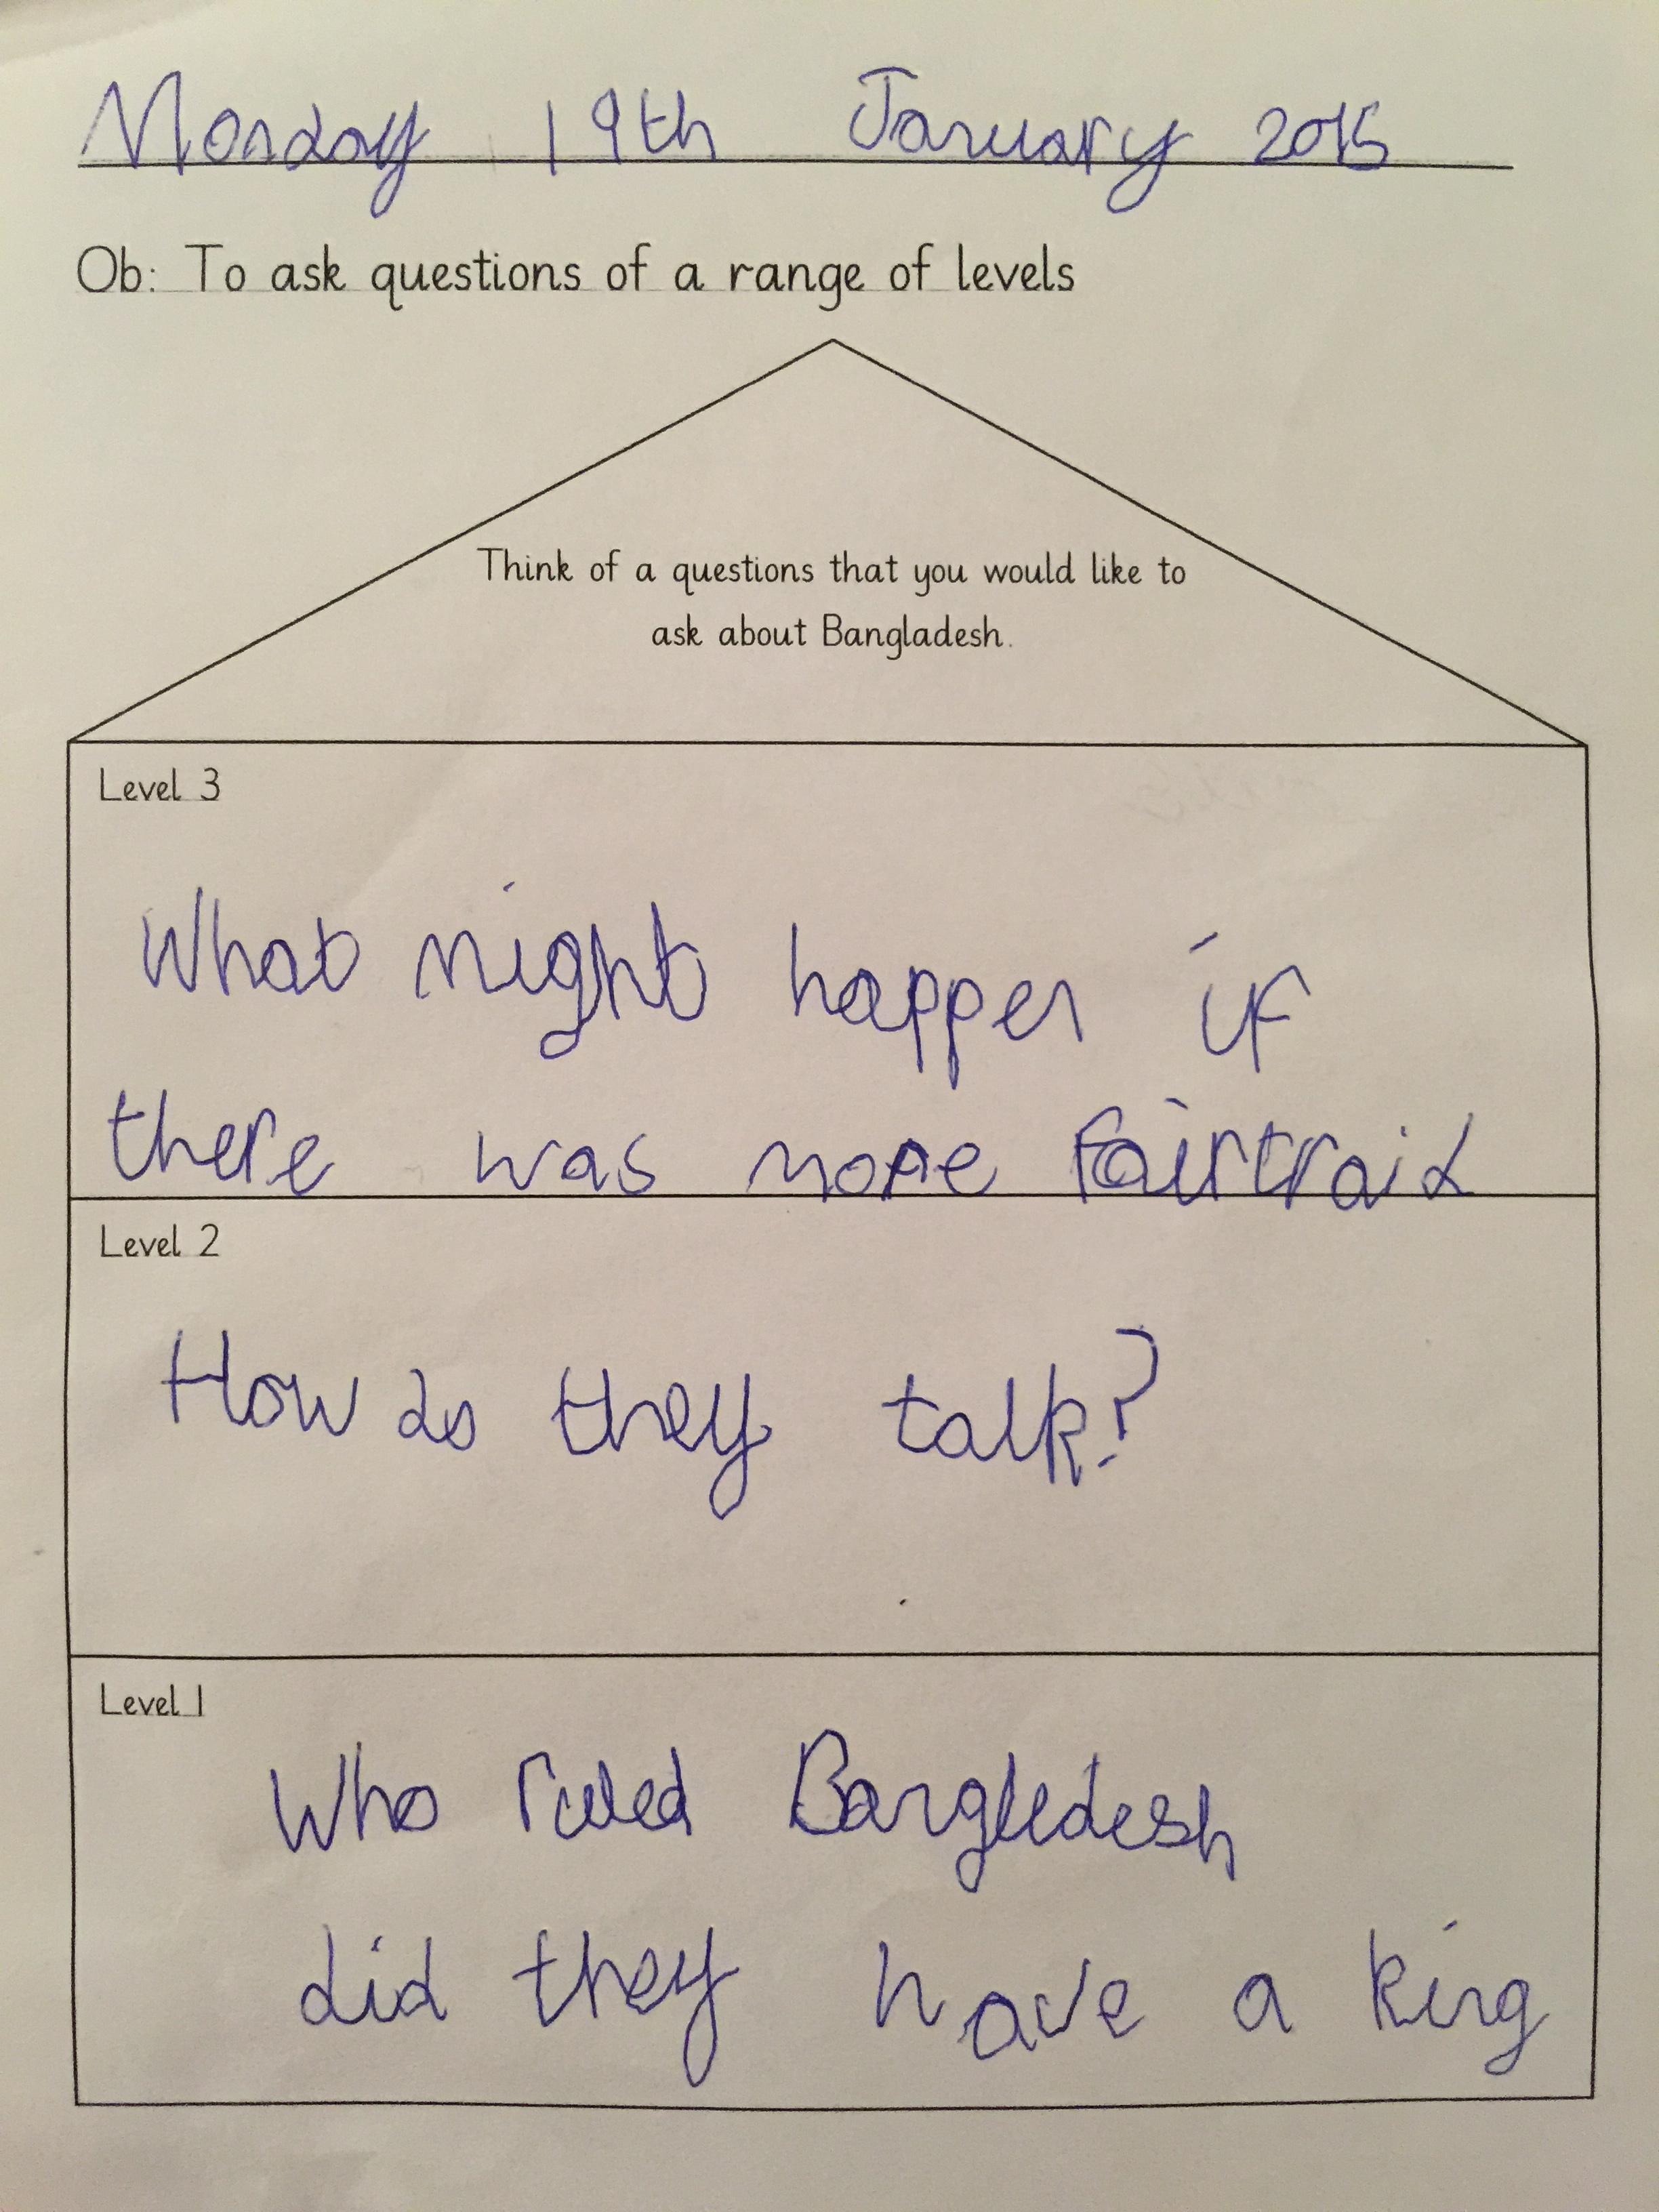 Monday 19th January 2015
Ob: To ask questions of a range of levels
Think of a questions that you would like to
ask about Bangladesh.
Level 3
What might happen if
there was more fairtraid
Level 2
How do they talk?
Level 1
Who ruled Bangledesh
did they have a king